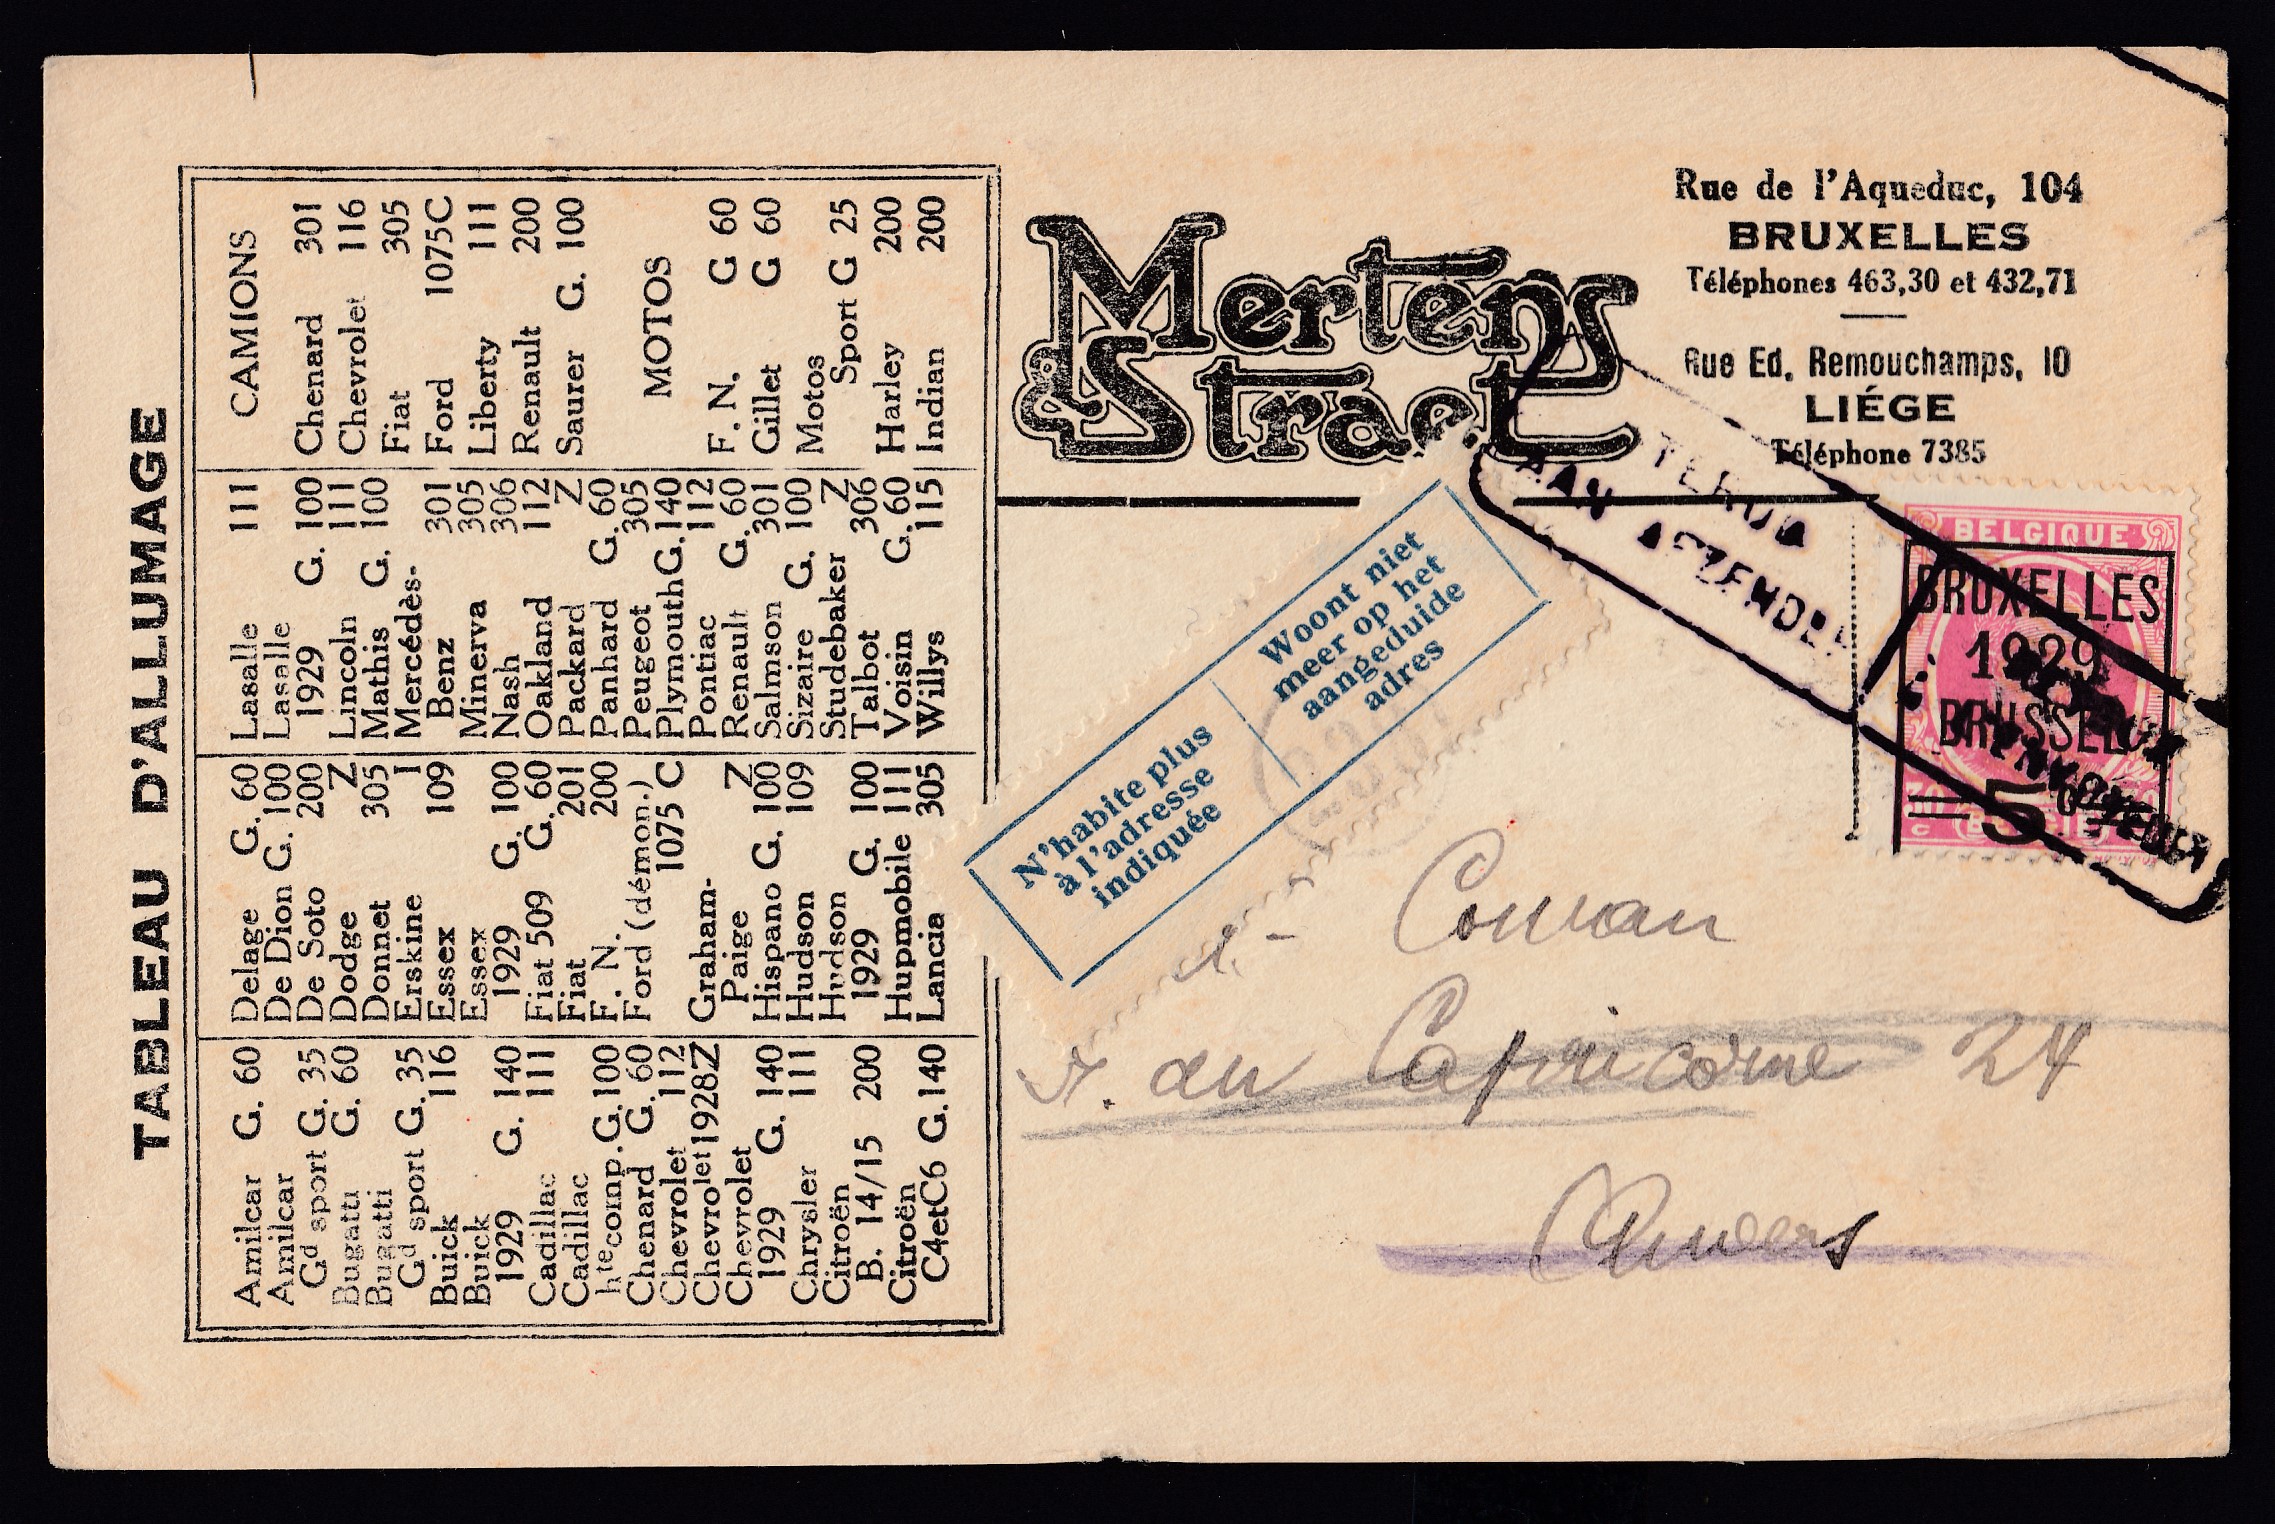 TABLEAU D'ALLUMAGE
Amilcar G. 60
Amilcar
Gd sport G. 35
Bugatti G. 60
Bugatti
Gd sport G. 35
Buick 116
Buick
1929 G. 140
Cadillac 111
Cadillac
hte comp. G. 100
Chenard G. 60
Chevrolet 112
Chevrolet 1928 Z
Chevrolet
1929 G. 140
Chrysler 111
Citroën
B. 14/15 200
Citroën
C4etC6 G. 140
Delage G. 60
De Dion G. 100
De Soto 200
Dodge Z
Donnet 305
Erskine I
Essex 109
Essex
1929 G. 100
Fiat 509 G. 60
Fiat 201
F. N. 200
Ford (démon.)
1075 C
Graham-
Paige Z
Hispano G. 100
Hudson 109
Hudson
1929 G. 100
Hupmobile 111
Lancia 305
Lasalle 111
Lasalle
1929 G. 100
Lincoln 111
Mathis G. 100
Mercédès-
Benz 301
Minerva 305
Nash 306
Oakland 112
Packard Z
Panhard G. 60
Peugeot 305
Plymouth G. 140
Pontiac 112
Renault G. 60
Salmson 301
Sizaire G. 100
Studebaker Z
Talbot 306
Voisin G. 60
Willys 115
CAMIONS
Chenard 301
Chevrolet 116
Fiat 305
Ford 1075C
Liberty 111
Renault 200
Saurer G. 100
MOTOS
F. N. G 60
Gillet G 60
Motos
Sport G 25
Harley 200
Indian 200
Mertens
& Straet
Rue de l'Aqueduc, 104
BRUXELLES
Téléphones 463,30 et 432,71
Rue Ed. Remouchamps, 10
LIÉGE
Téléphone 7385
TERUG
AAN AFZENDER
BELGIQUE
BRUXELLES
1929
BRUSSEL
5c
BELGIË
N'habite plus
à l'adresse
indiquée
Woont niet
meer op het
aangeduide
adres
Conran
r. du Capricorne 24
Anvers